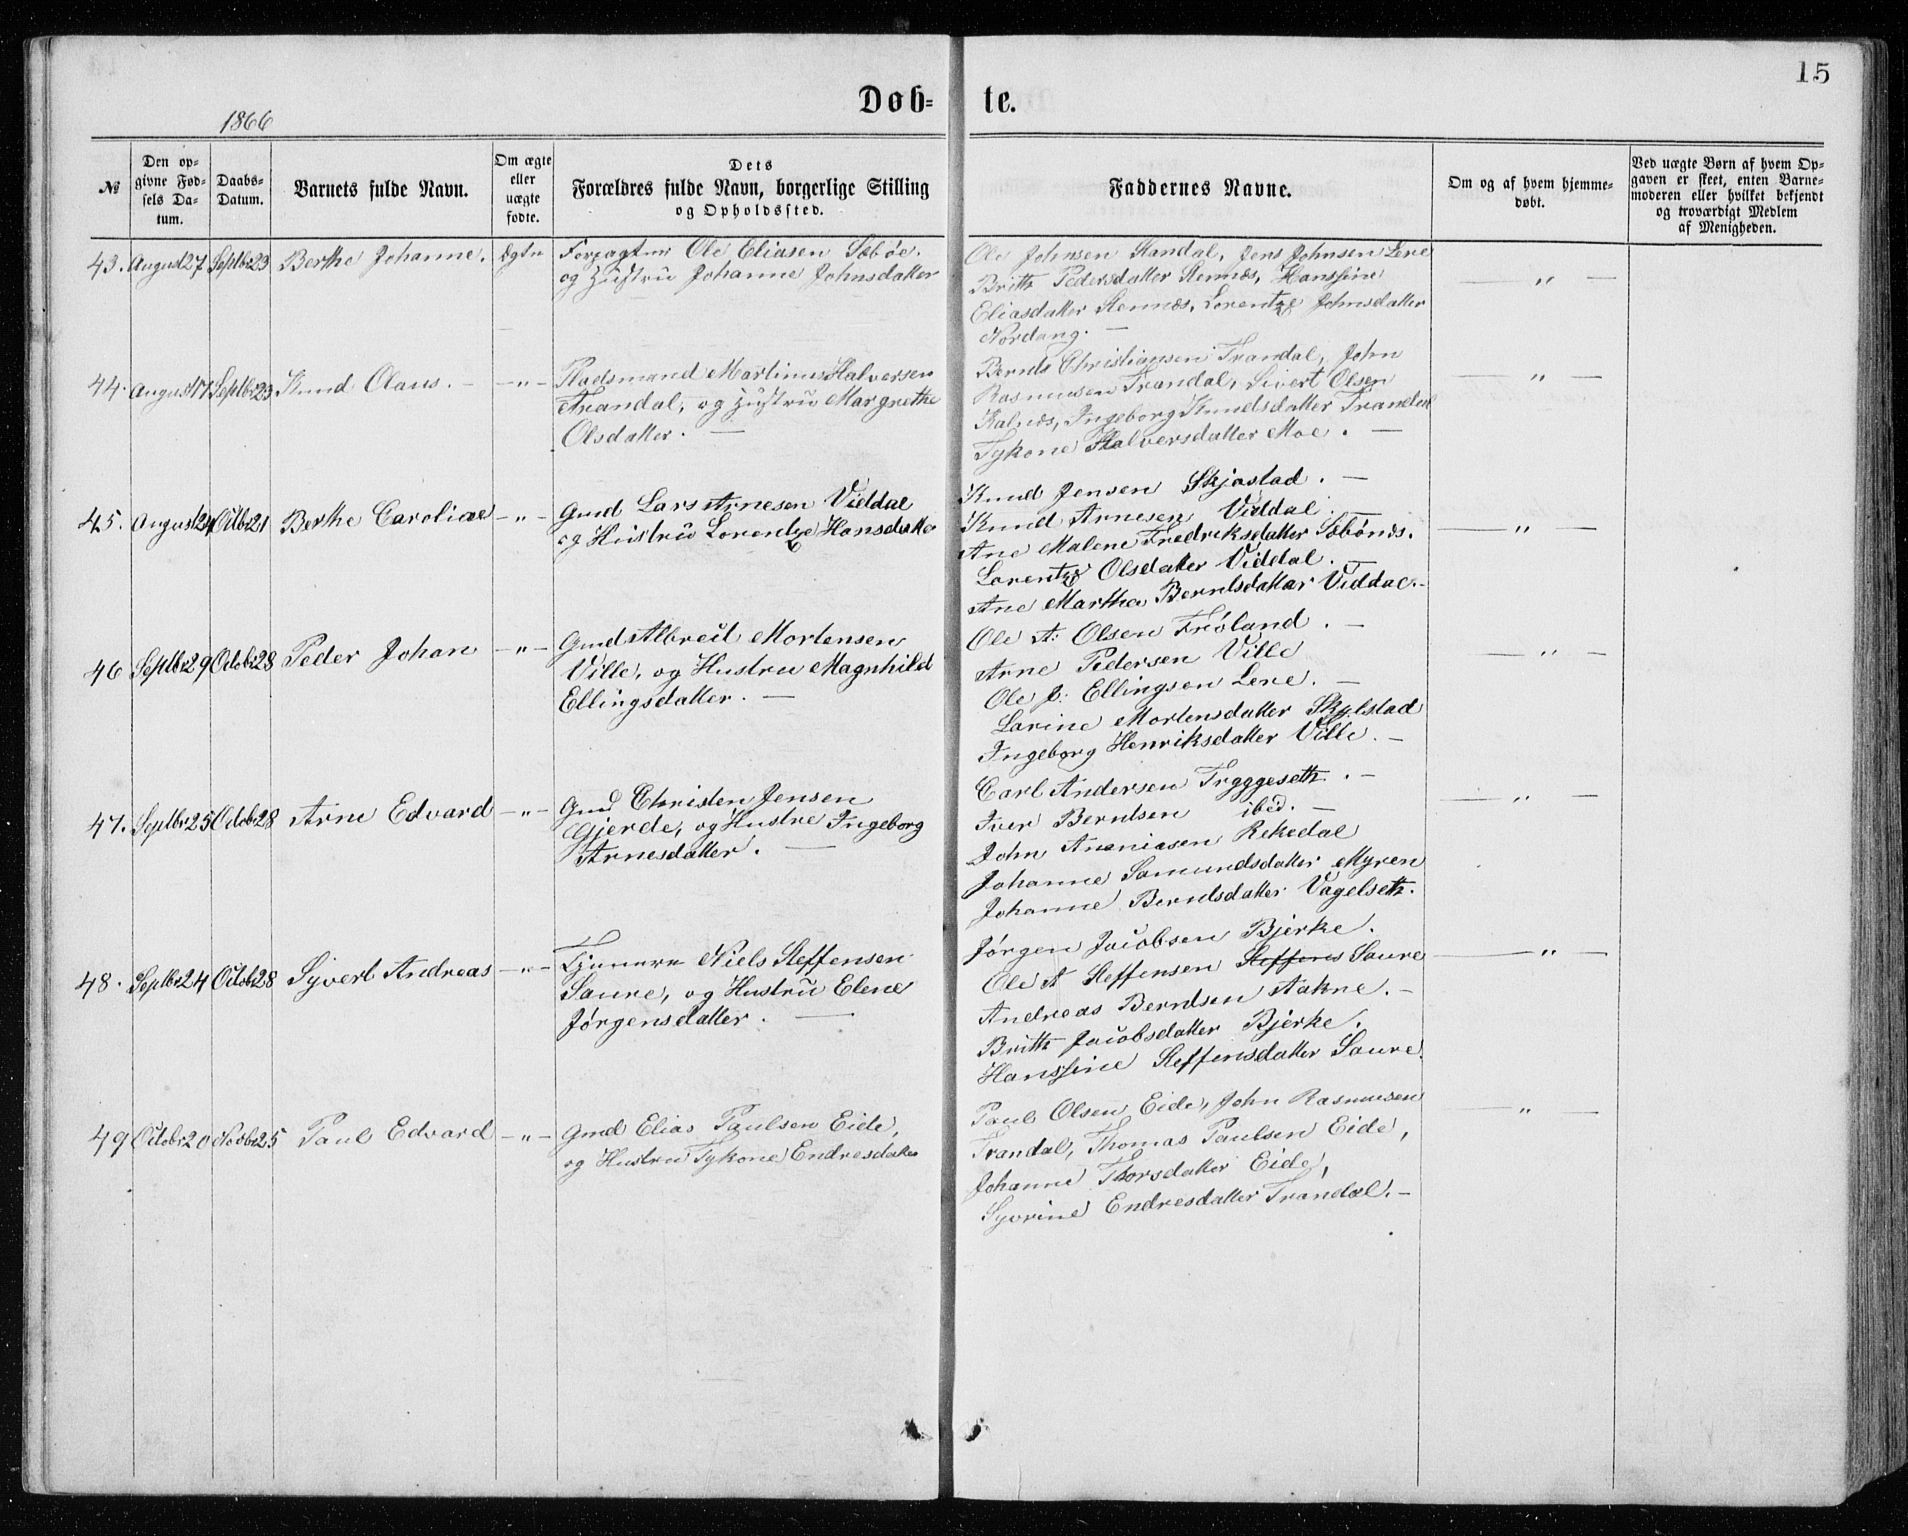 15
Døb- te.
1866
№
Den op-
givne Fød-
sels Da-
tum.
Daabs-
Datum.
Barnets fulde Navn.
Om ægte
eller
uægte
fødte.
Dets
Forældres fulde Navn, borgerlige Stilling
og Opholdssted.
Faddernes Navne.
Om og af hvem hjemme-
døbt.
Ved uægte Børn af hvem Op-
gaven er skeet, enten Barne-
moderen eller hvilket bekjendt
og troværdigt Medlem
af Menigheden.
43. August 27 Septbr 23 Berthe Johanne. Ægte Forpagter Ole Eliasen Sæbøe.
og Hustru Johanne Johnsdatter
Ole Johnsen Standal, Jens Johnsen Lene
Britth Pedersdatter Stennæs, Hanssine
Eliasdatter Stennæs, Lorentze Johnsdatter
Nordang. —
— " —
44. August 17 Septbr 23 Knud Olaus. — — " — Pladsmand Martinus Halversen
Trandal, og Hustru Margrethe
Olsdatter. —
Bernts Christiansen Trandal, John
Rasmusen Trandal, Sivert Olsen
Kalnæs, Ingeborg Knudsdatter Trandal
Tykone Halversdatter Moe. —
— " —
45. August 24 Octbr 21 Berthe Caroliae — " — Gmd Lars Arnesen Viddal
og Hustru Lorentze Hansdatter
Knud Jensen Skjastad. —
Knud Arnesen Viddal.
Ane Malene Fredriksdatter Sæbønes.
Lorentze Olsdatter Viddal. —
Ane Martha Berntsdatter Viddal. —
— " —
46 Septbr 29 Octobr 28 Peder Johan — " — Gmd Albreit Mortensen
Ville, og Hustru Magnhild
Ellingsdatter. —
Ole A: Olsen Frøland. —
Arne Pedersen Ville
Ole J: Ellingsen Lene. —
Larine Mortensdatter Skylstad
Ingeborg Henriksdatter Ville. —
— " —
47. Septbr 25 Octobr 28 Arne Edvard — " — Gmd Christen Jensen
Gjerde, og Hustru Ingeborg
Arnesdatter. —
Carl Andersen Trygggeseth. —
Iver Berntsen ibid. —
John Ananiasen Rekedal
Johanne Samundsdatter Myren
Johanne Berntsdatter Vagelseth.
— " —
48. Septbr 24 Octobr 28 Syvert Andreas — " — Tjenere Niels Steffensen
Saure, og Hustru Elene
Jørgensdatter. —
Jørgen Jacobsen Bjerke.
Ole A Steffensen Steffens Saure
Andreas Berntsen Aakne. —
Britth Jacobsdatter Bjerke.
Hanssine Steffensdatter Saure.
— " —
49 Octobr 20 Novbr 25 Paul Edvard — " — Gmd Elias Paulsen Eide,
og Hustru Tykone Endresdatter
Paul Olsen Eide, John Rasmusen
Trandal, Thomas Paulsen Eide,
Johanne Thorsdatter Eide,
Syvrine Endresdatter Trandal. —
— " —